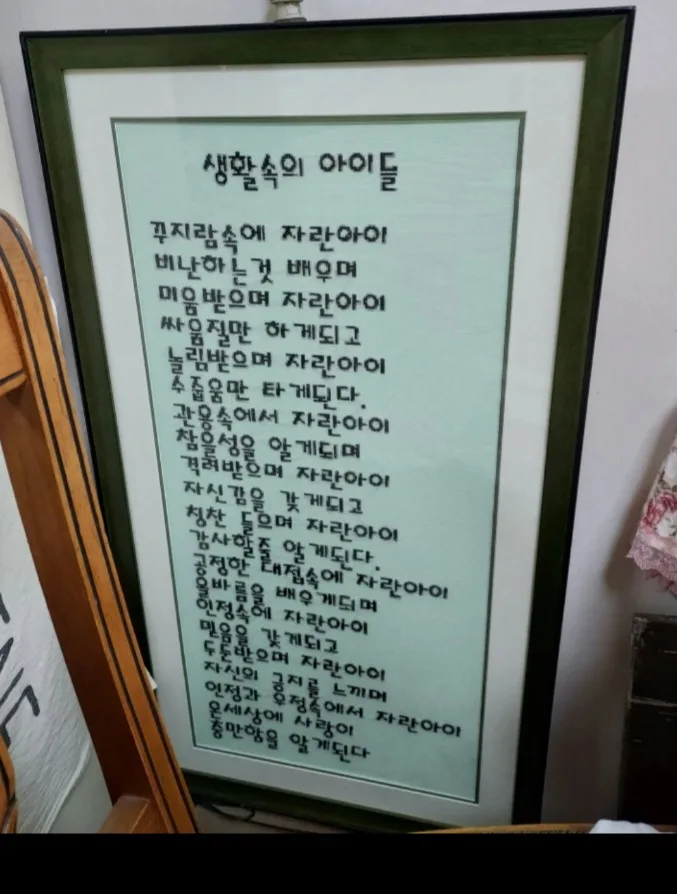 생활속의 아이들
꾸지람속에 자란아이
비난하는것 배우며
미움받으며 자란아이
싸움질만 하게되고
놀림받으며 자란아이
수줍움만 타게된다.
관용속에서 자란아이
참을성을 알게되며
격려받으며 자란아이
자신감을 갖게되고
칭찬 들으며 자란아이
감사할줄 알게된다.
공정한 대접속에 자란아이
올바름을 배우게되며
안정속에 자란아이
믿음을 갖게되고
두둔받으며 자란아이
자신의 긍지를 느끼며
인정과 우정속에서 자란아이
온세상에 사랑이
충만함을 알게된다